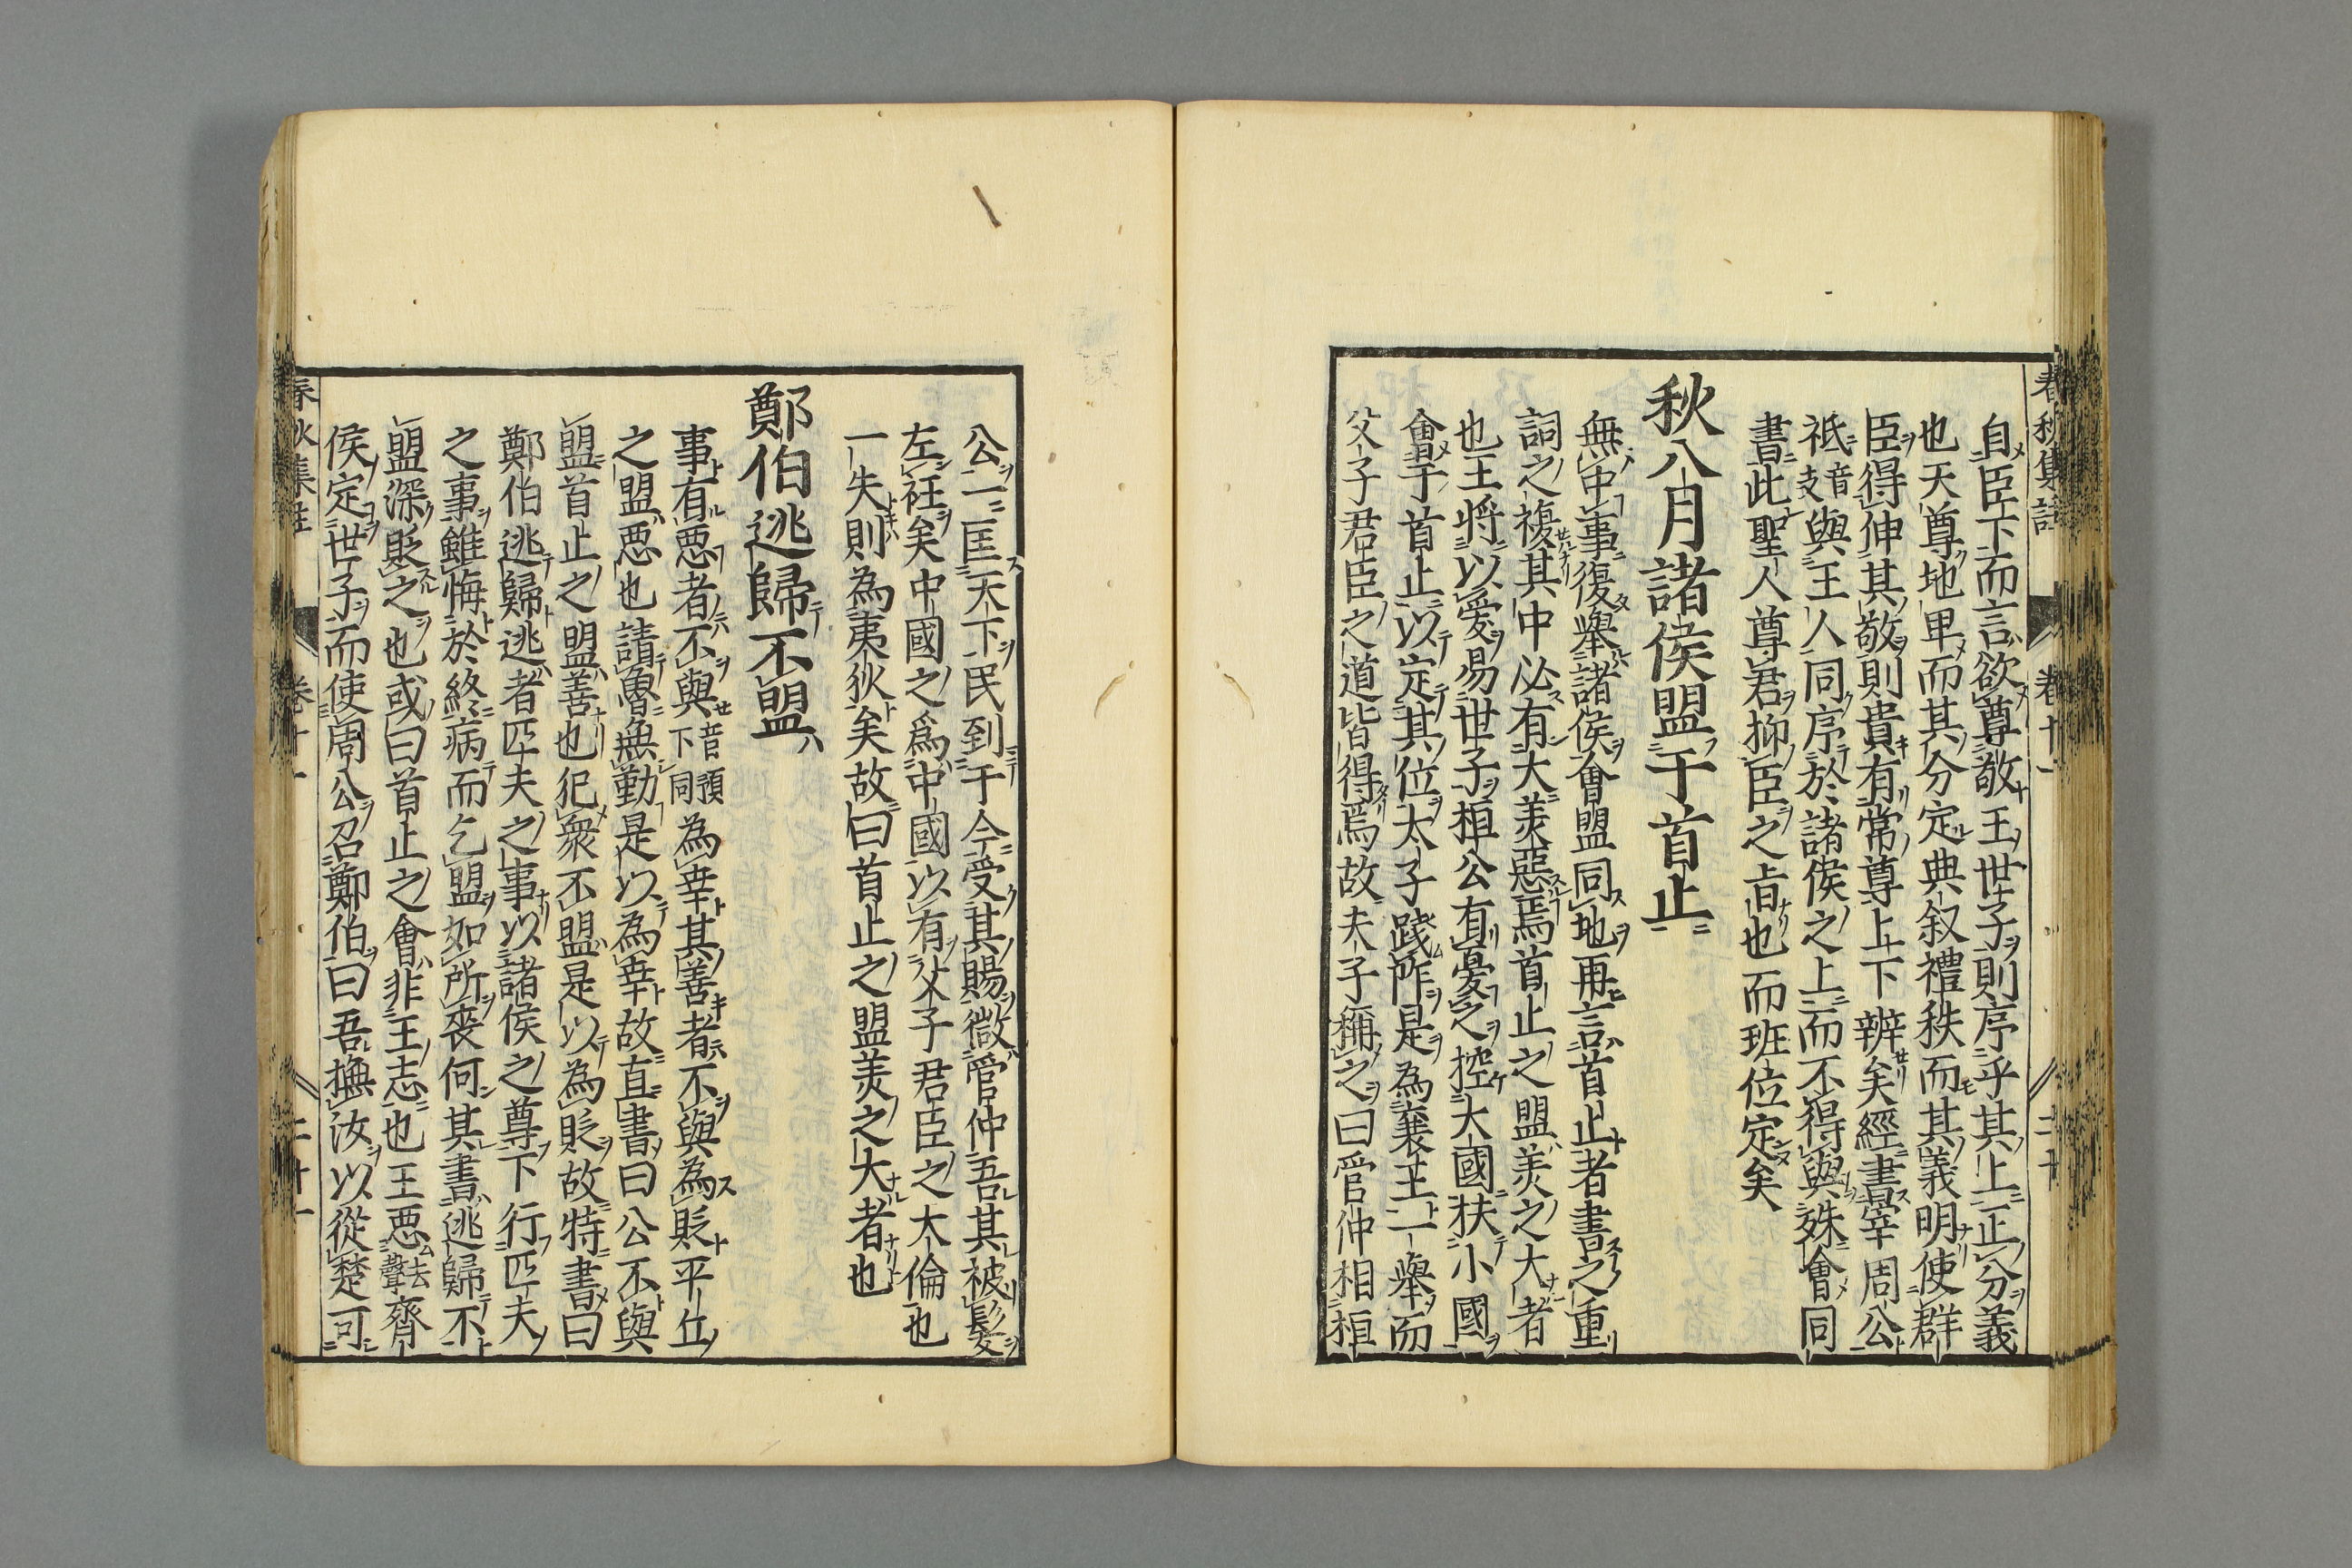 春秋集註 卷十一 二十
自臣下而言欲尊敬王世子則序乎其上正分義
也天尊地卑而其分定典叙禮秩而其義明使群
臣得伸其敬則貴有常尊上下辨矣經書宰周公
祗音支與王人同序於諸侯之上而不得與殊會同
書此聖人尊君抑臣之旨也而班位定矣
秋八月諸侯盟于首止
無中事復舉諸侯會盟同地再言首止者書之重
詞之複其中必有大美惡焉首止之盟美之大者
也王將以愛易世子桓公有憂之控大國扶小國
會于首止以定其位太子踐阼是為襄王一舉而
父子君臣之道皆得焉故夫子稱之曰管仲相桓
公一匡天下民到于今受其賜微管仲吾其被髮
左衽矣中國之爲中國以有父子君臣之大倫也
一失則為夷狄矣故曰首止之盟美之大者也
鄭伯逃歸不盟
事有惡者不與音預下同為幸其善者不與為貶平丘
之盟惡也請魯無勤是以為幸故直書曰公不與
盟首止之盟善也犯衆不盟是以為貶故特書曰
鄭伯逃歸逃者匹夫之事以諸侯之尊下行匹夫
之事雖悔於終病而乞盟如所喪何其書逃歸不
盟深貶之也或曰首止之會非王志也王惡去聲齊
侯定世子而使周公召鄭伯曰吾撫汝以從楚可
春秋集註 卷十一 二十一